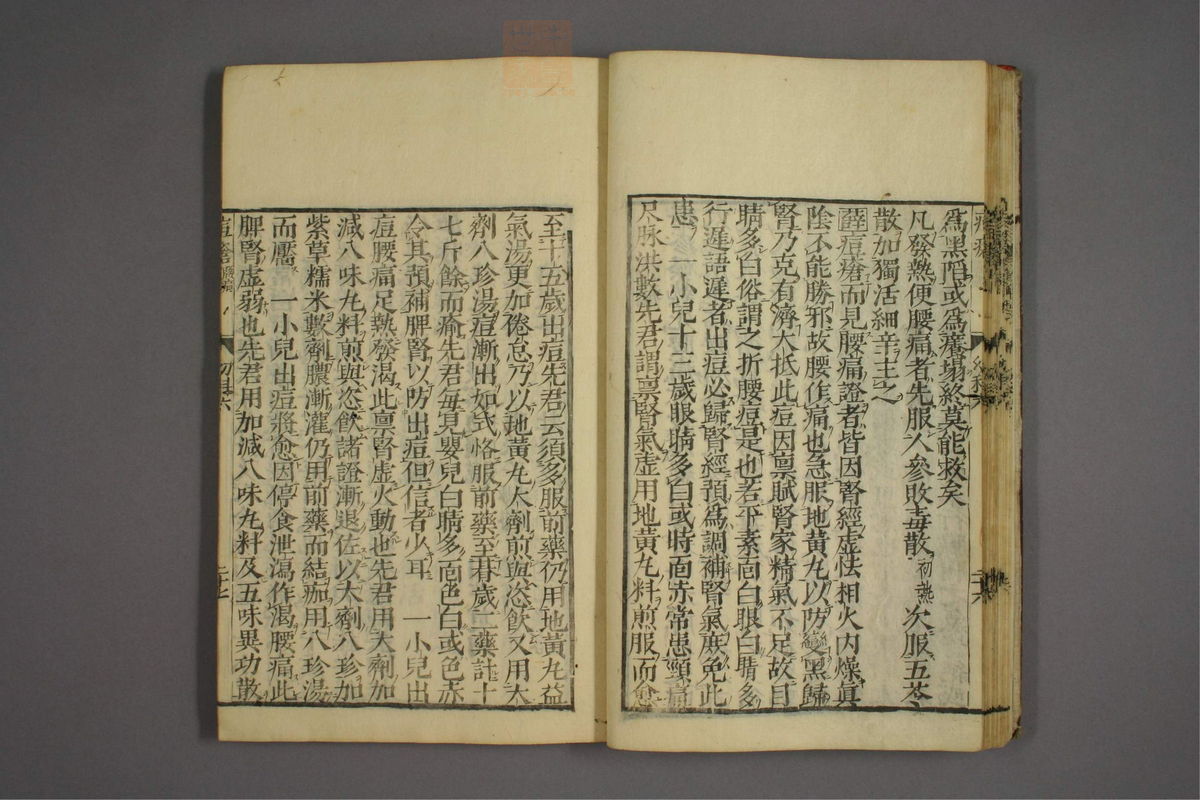 爲黑陷或爲癢塌終莫能救矣
凡發熱便腰痛者先服人參敗毒散初熱次服五苓
散加獨活細辛主之
薛痘瘡而見腰痛證者皆因腎經虛怯相火内燥眞
陰不能勝邪故腰作痛也急服地黃丸以防變黑歸
腎乃克有濟大抵此痘因禀賦腎家精氣不足故目
睛多白俗謂之折腰痘是也若平素面白眼白睛多
行遲語遲者出痘必歸腎經預爲調補腎氣庶免此
患 一小兒十三歲眼睛多白或時面赤常患頭痛
尺脉洪數先君謂禀腎氣虛用地黃丸料煎服而愈
至十五歲出痘先君云須多服前藥仍用地黃丸益
氣湯更加倦怠乃以地黃丸大劑煎與恣飲又用大
劑八珍湯痘漸出如式恪服前藥至朞歲二藥計十
七斤餘而痊先君每見嬰兒白睛多面色白或色赤
令其預補脾腎以防出痘但信者少耳 一小兒出
痘腰痛足熱發渴此禀腎虛火動也先君用大劑加
減八味丸料煎與恣飲諸證漸退佐以大劑八珍加
紫草糯米數劑膿漸灌仍用前藥而結痂用八珍湯
而靨 一小兒出痘將愈因停食泄瀉作渴腰痛此
脾腎虛弱也先君用加減八味丸料及五味異功散